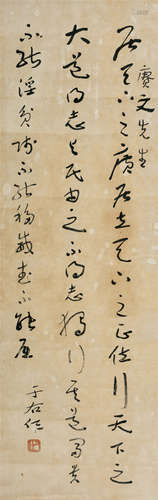 賡文先生
居天下之廣居立天下之正位行天下之
大道得志与民由之不得志獨行其道富貴
不能淫貧賤不能移威武不能屈
于右任